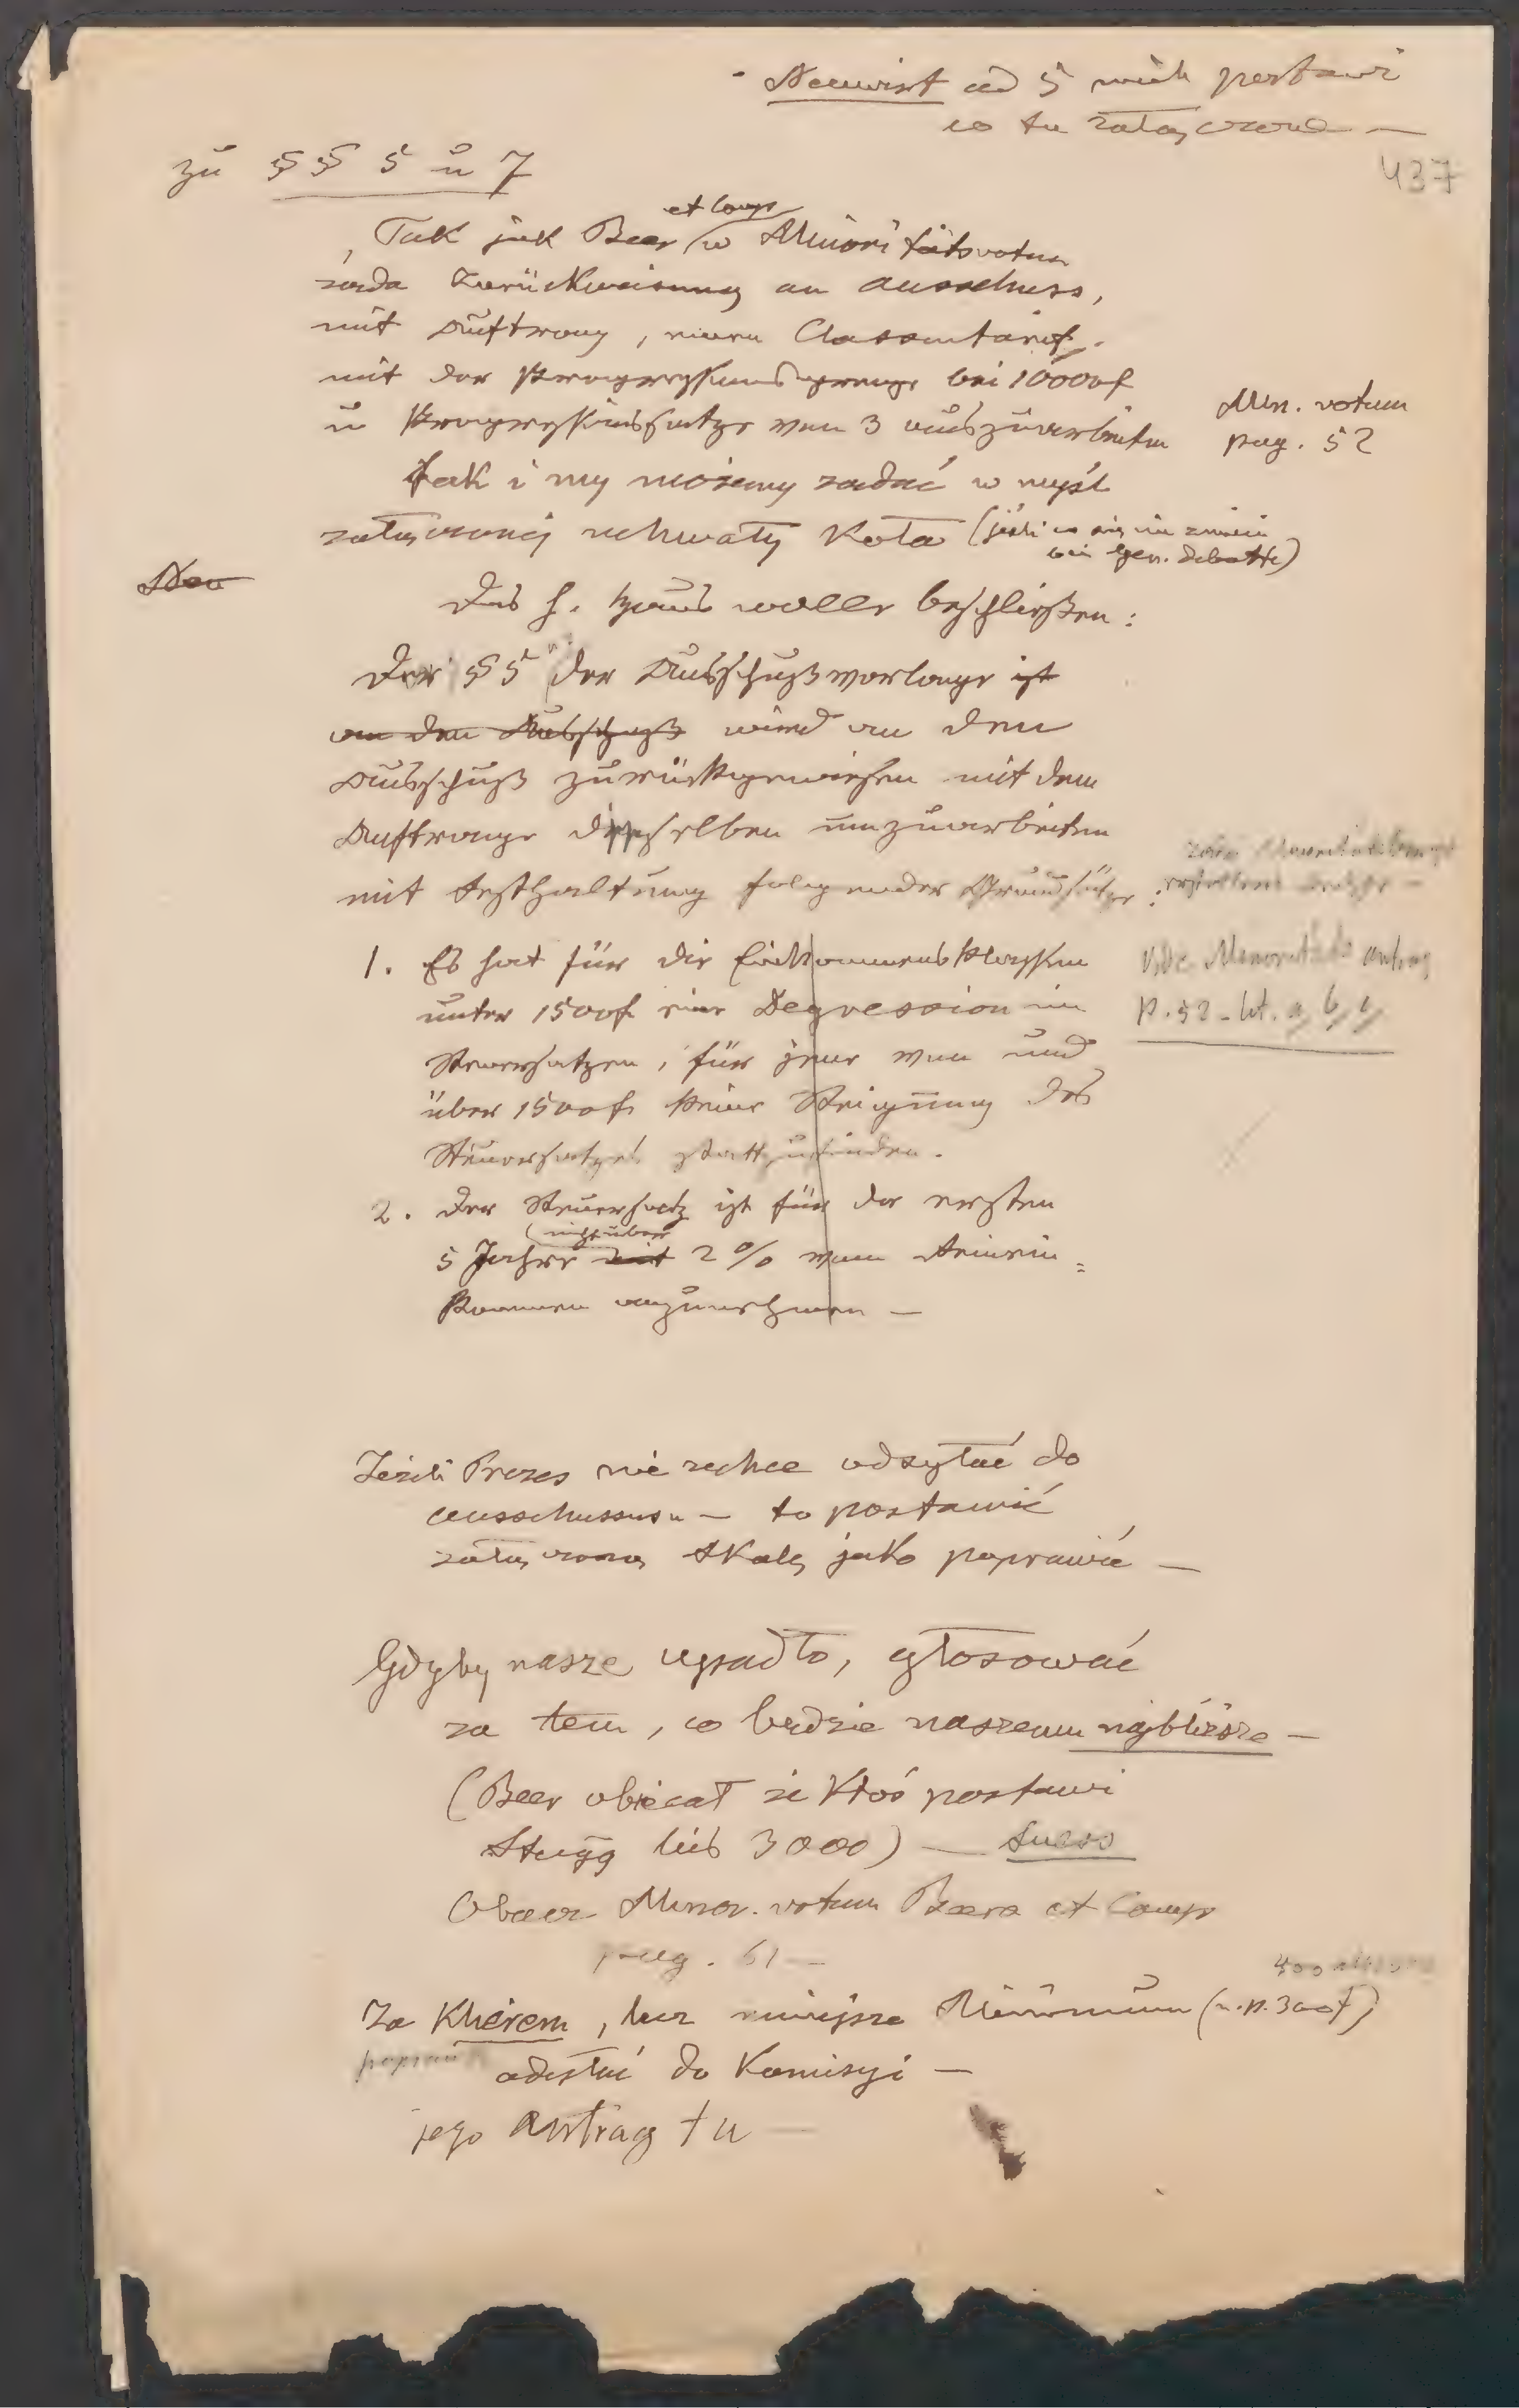 Neuwirt ad 5 niech postawi
co tu załączone —
437
zu §§ 5 u 7
Tak jak Beer et Comp w Minoritätsvotum
żąda Zurückweisung an Ausschuss,
mit Auftrag, einen Classentarif
mit der Progressionsgrenze bei 10000f
u Progressionssatze von 3 auszuarbeiten
Min. votum
pag. 52
Tak i my możemy żądać w myśl
załączonej uchwały Koła (jeśli co się nie zmieni
bei Gen. Debatte)
Neu
Das h. Haus wolle beschließen:
Der § 5 der Ausschußvorlage ist
an den Ausschuß wird an den
Ausschuß zurückgewiesen mit dem
Auftrage denselben umzuarbeiten
mit Festhaltung folgender Grundsätze:
1. Es hat für die Einkommensklassen
unter 1500f eine Degression im
Steuersatzen, für jene von und
über 1500f keine Steigerung des
Steuersatzes stattzufinden.
Vide Minoritäts antrag
p. 52 - lit. a, b, c,
2. Der Steuersatz ist für die ersten
5 Jahre mit nicht über 2% vom Reinein=
kommen anzunehmen —
Jeżeli Prezes nie zechce odsyłać do
Ausschussus — to postawić
załączoną skalę jako poprawkę —
Gdyby nasze upadło, głosować
za tem, co będzie naszemu najbliższe —
(Beer obiecał że Ktoś postawi
bis 3000) — Suess
Obacz Minor. votum Beera et Comp
pag. 61 —
Za , lecz mniejsze Minimum (n.p. 300f)
odesłać do Komisyi —
jego Antrag tu —